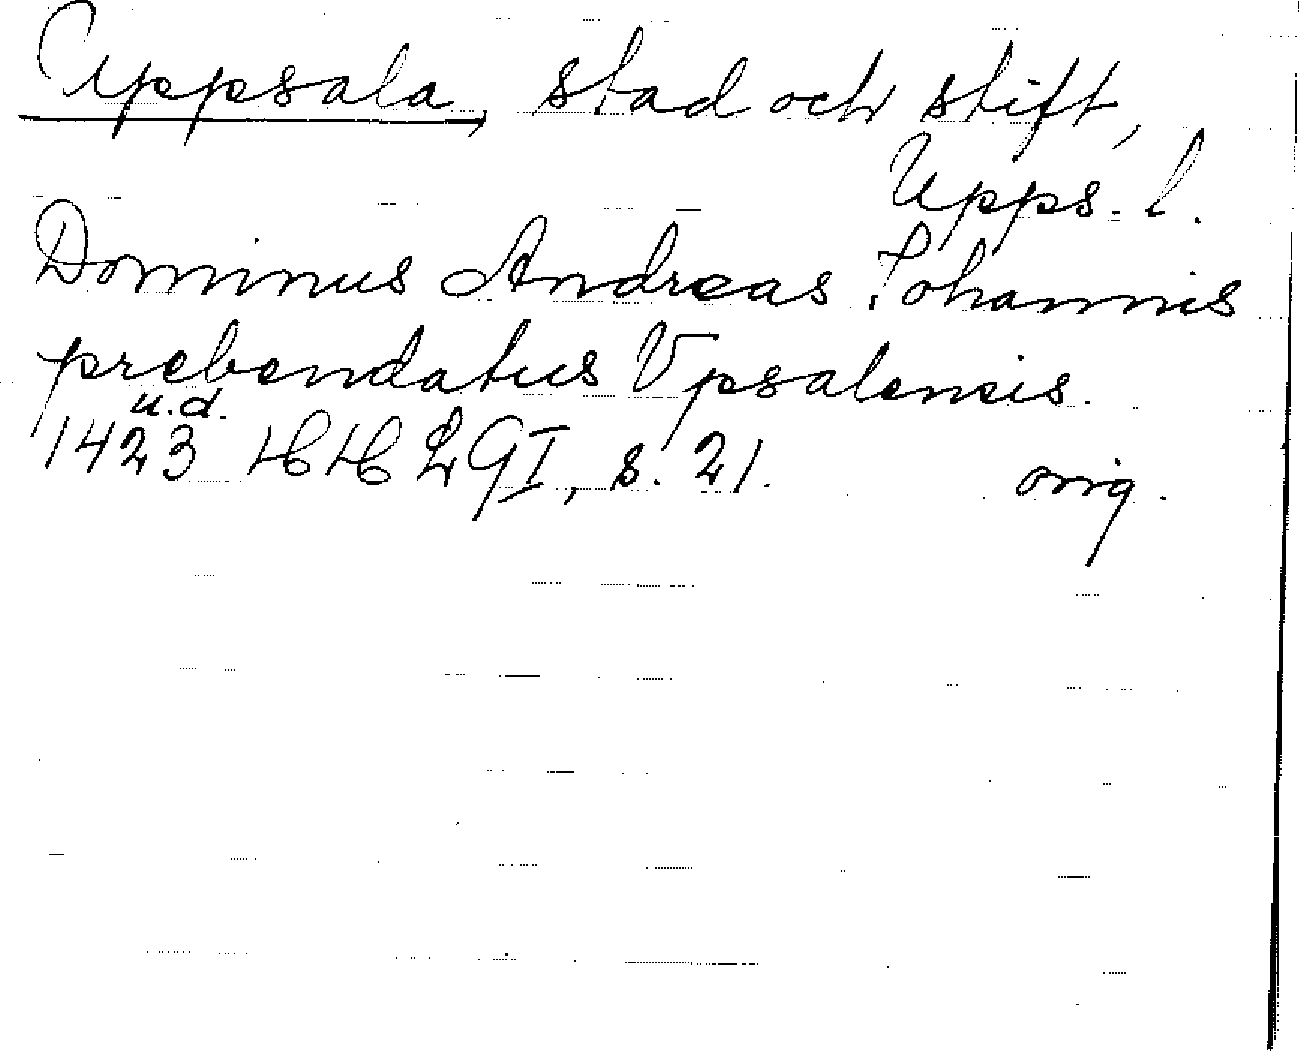 Uppsala, stad och stift,
Upps. l.
Dominus Andreas Johannis
prebendatus Vpsalensis.
u.d.
1423 HH LGI, s. 21. orig.